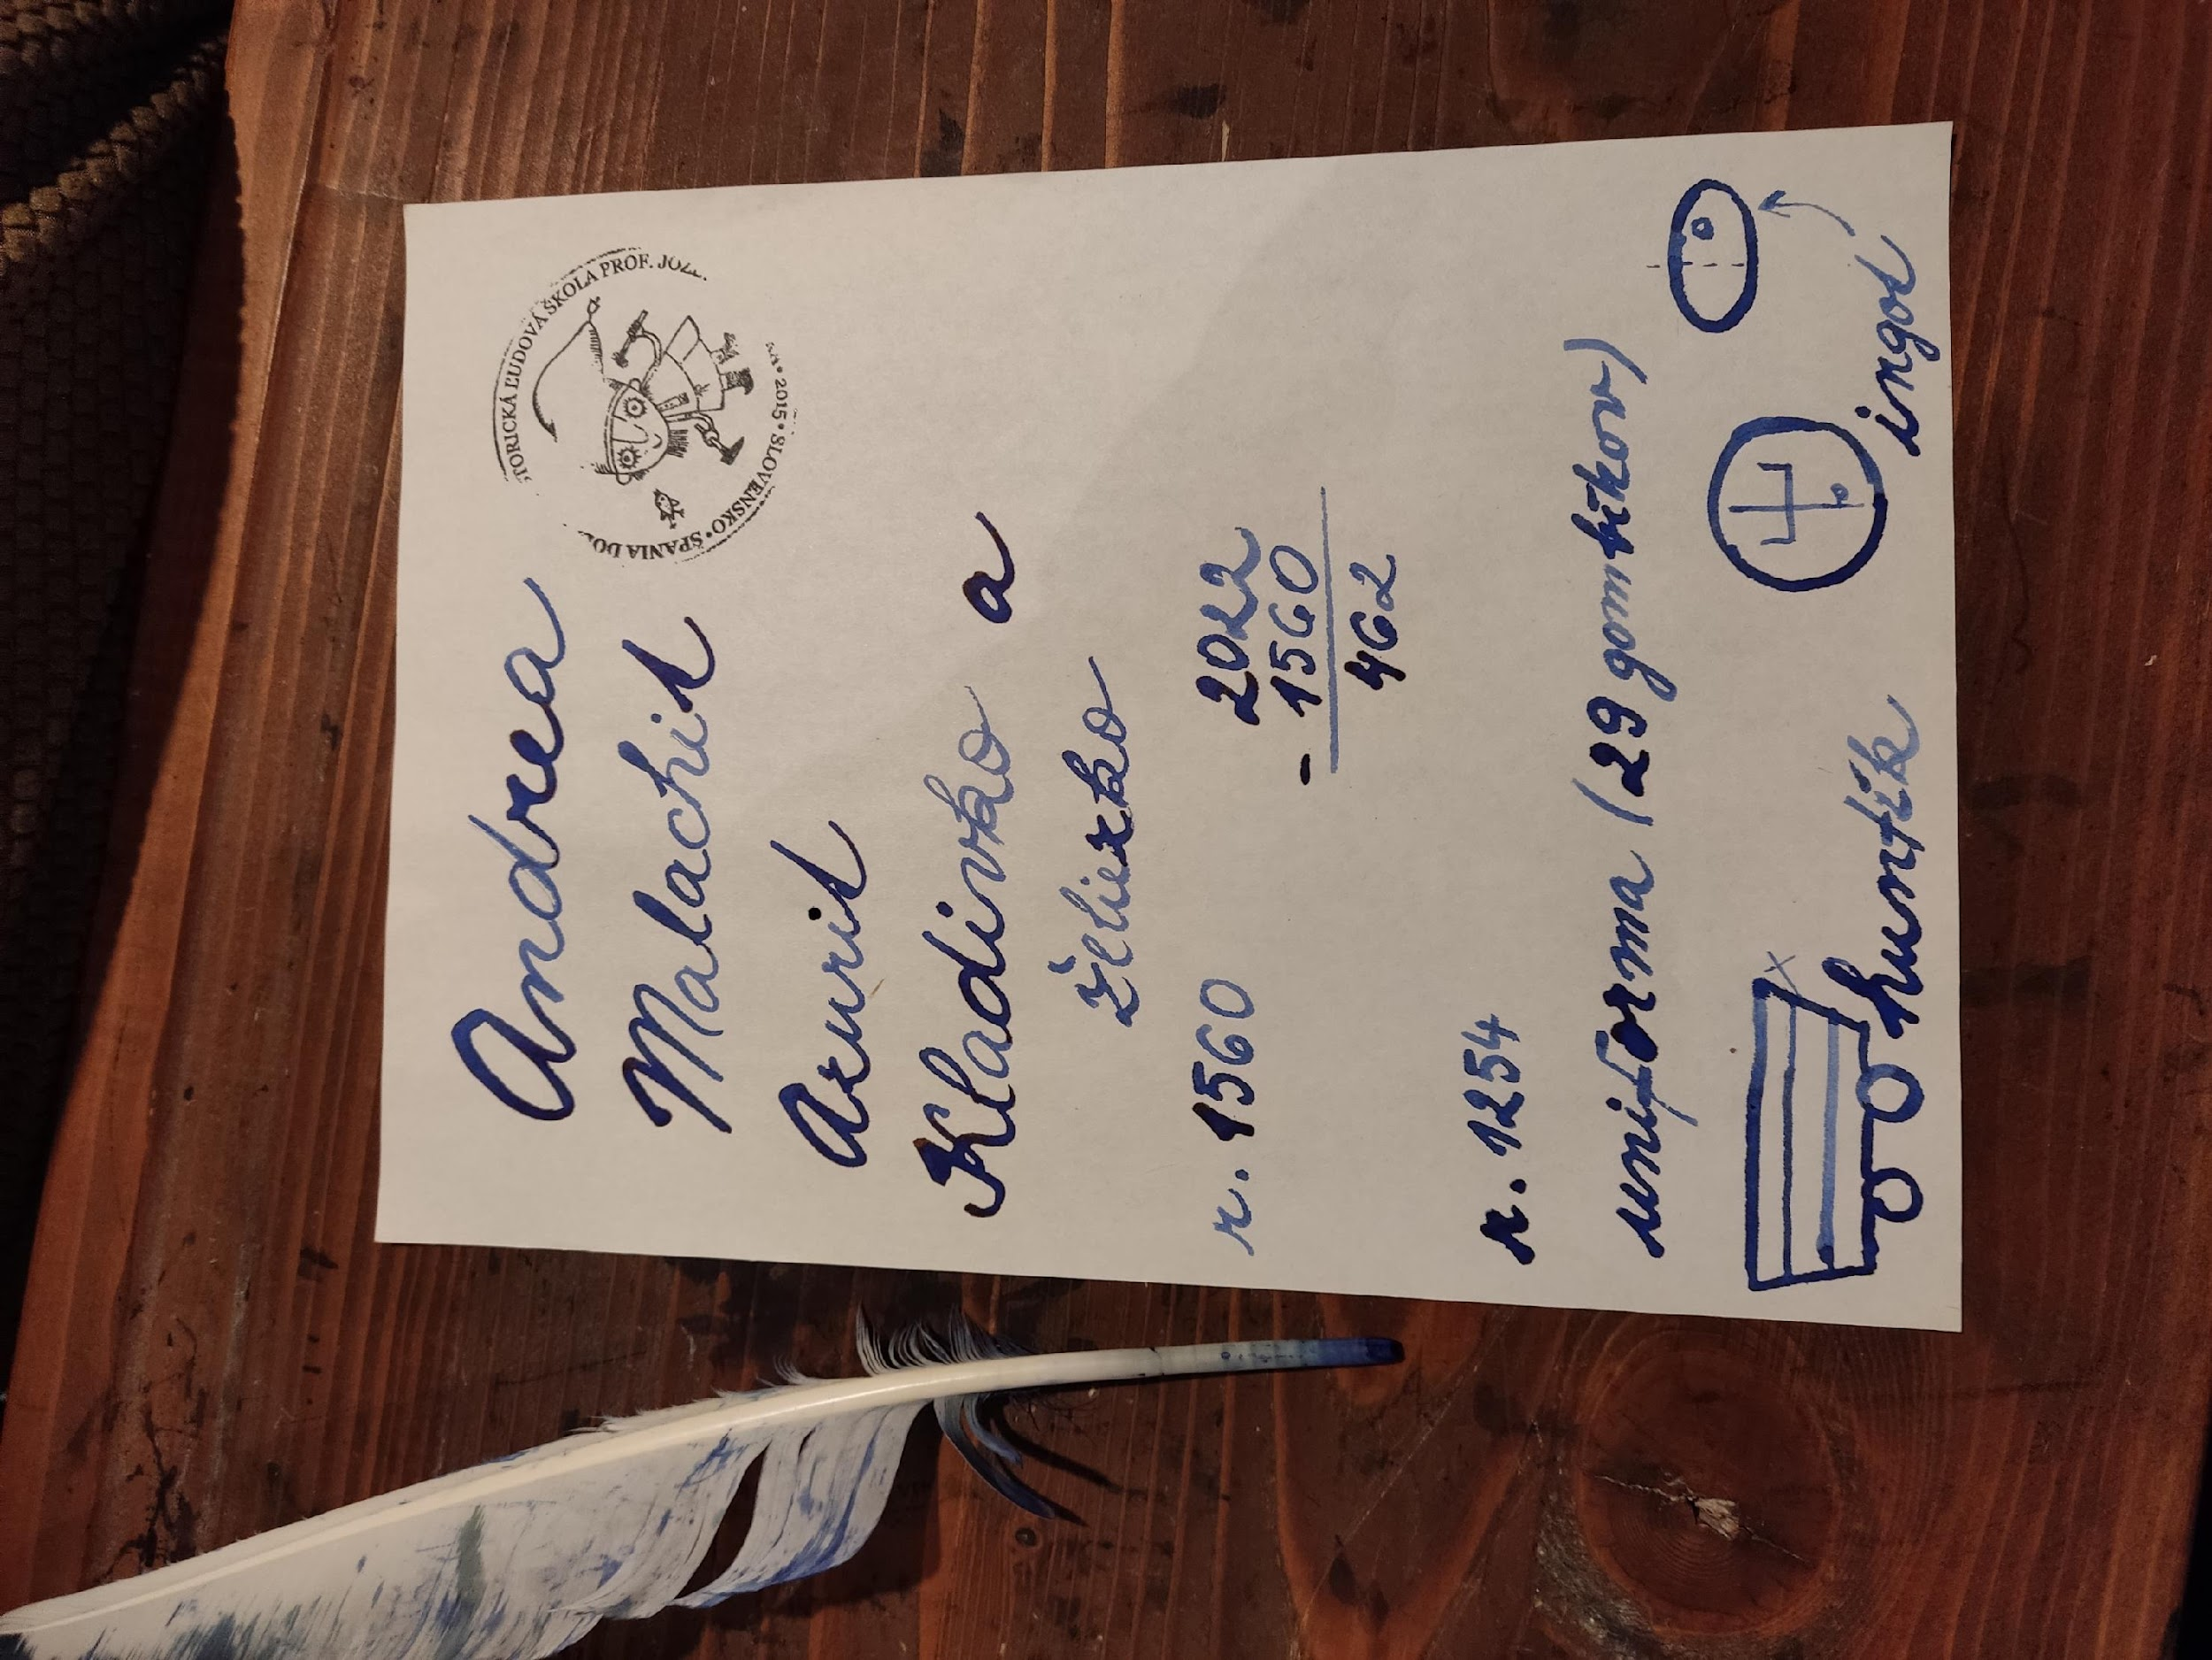 TORICKÁ ĽUDOVÁ ŠKOLA PROF. JOZ
2015 • SLOVENSKO • ŠPANIA DO
Andrea
Malachit
Azurit
Kladivko a
želiezko
r. 1560
2022
- 1560
462
r. 1254
uniforma (29 gombíkov)
huntík
ingot